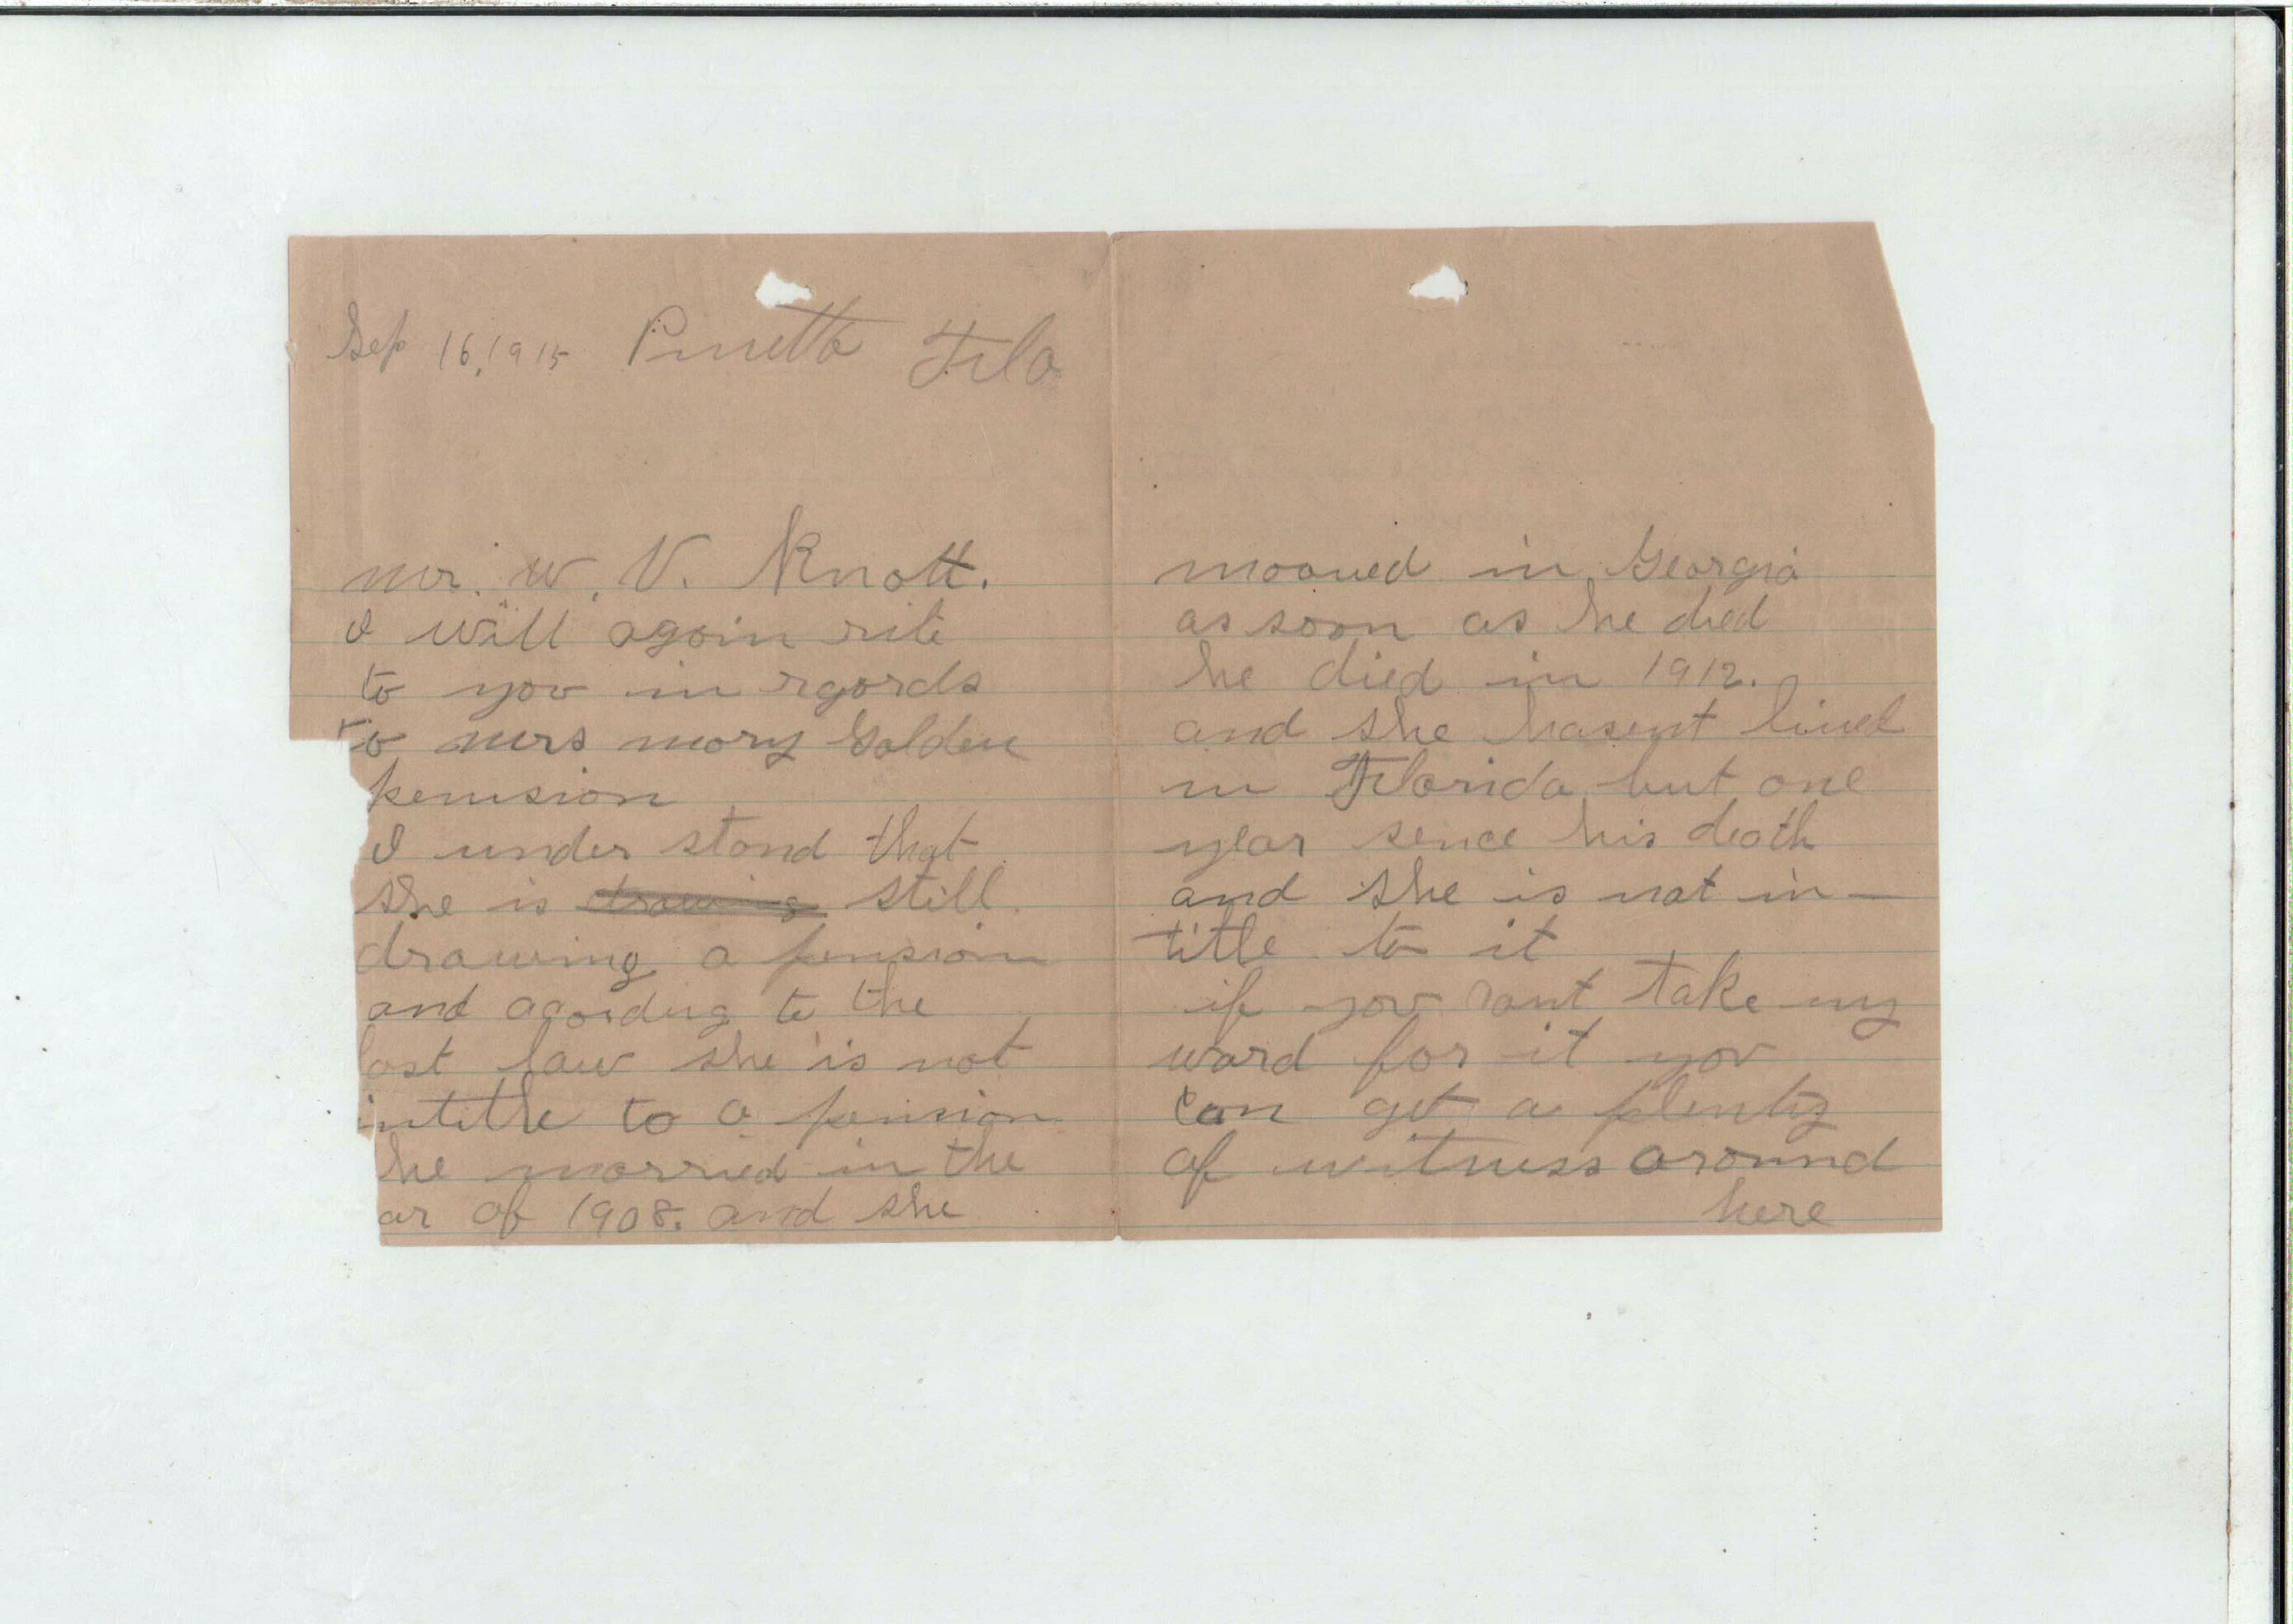 Sep 16, 1915 Pinetta Fla
mr. W. V. Knott.
I will again rite
to you in rgards
to mrs mary Golden
penision
I under stand that
she is drawing still
drawing a pension
and acording to the
last law she is not
intitle to a pension
he married in the
ar of 1908. and she
mooved in Georgia
as soon as he died
he died in 1912.
and she hasent lived
in Florida but one
year sence his death
and she is not in-
title to it
if you cant take my
word for it you
can get a plenty
of witness around
here